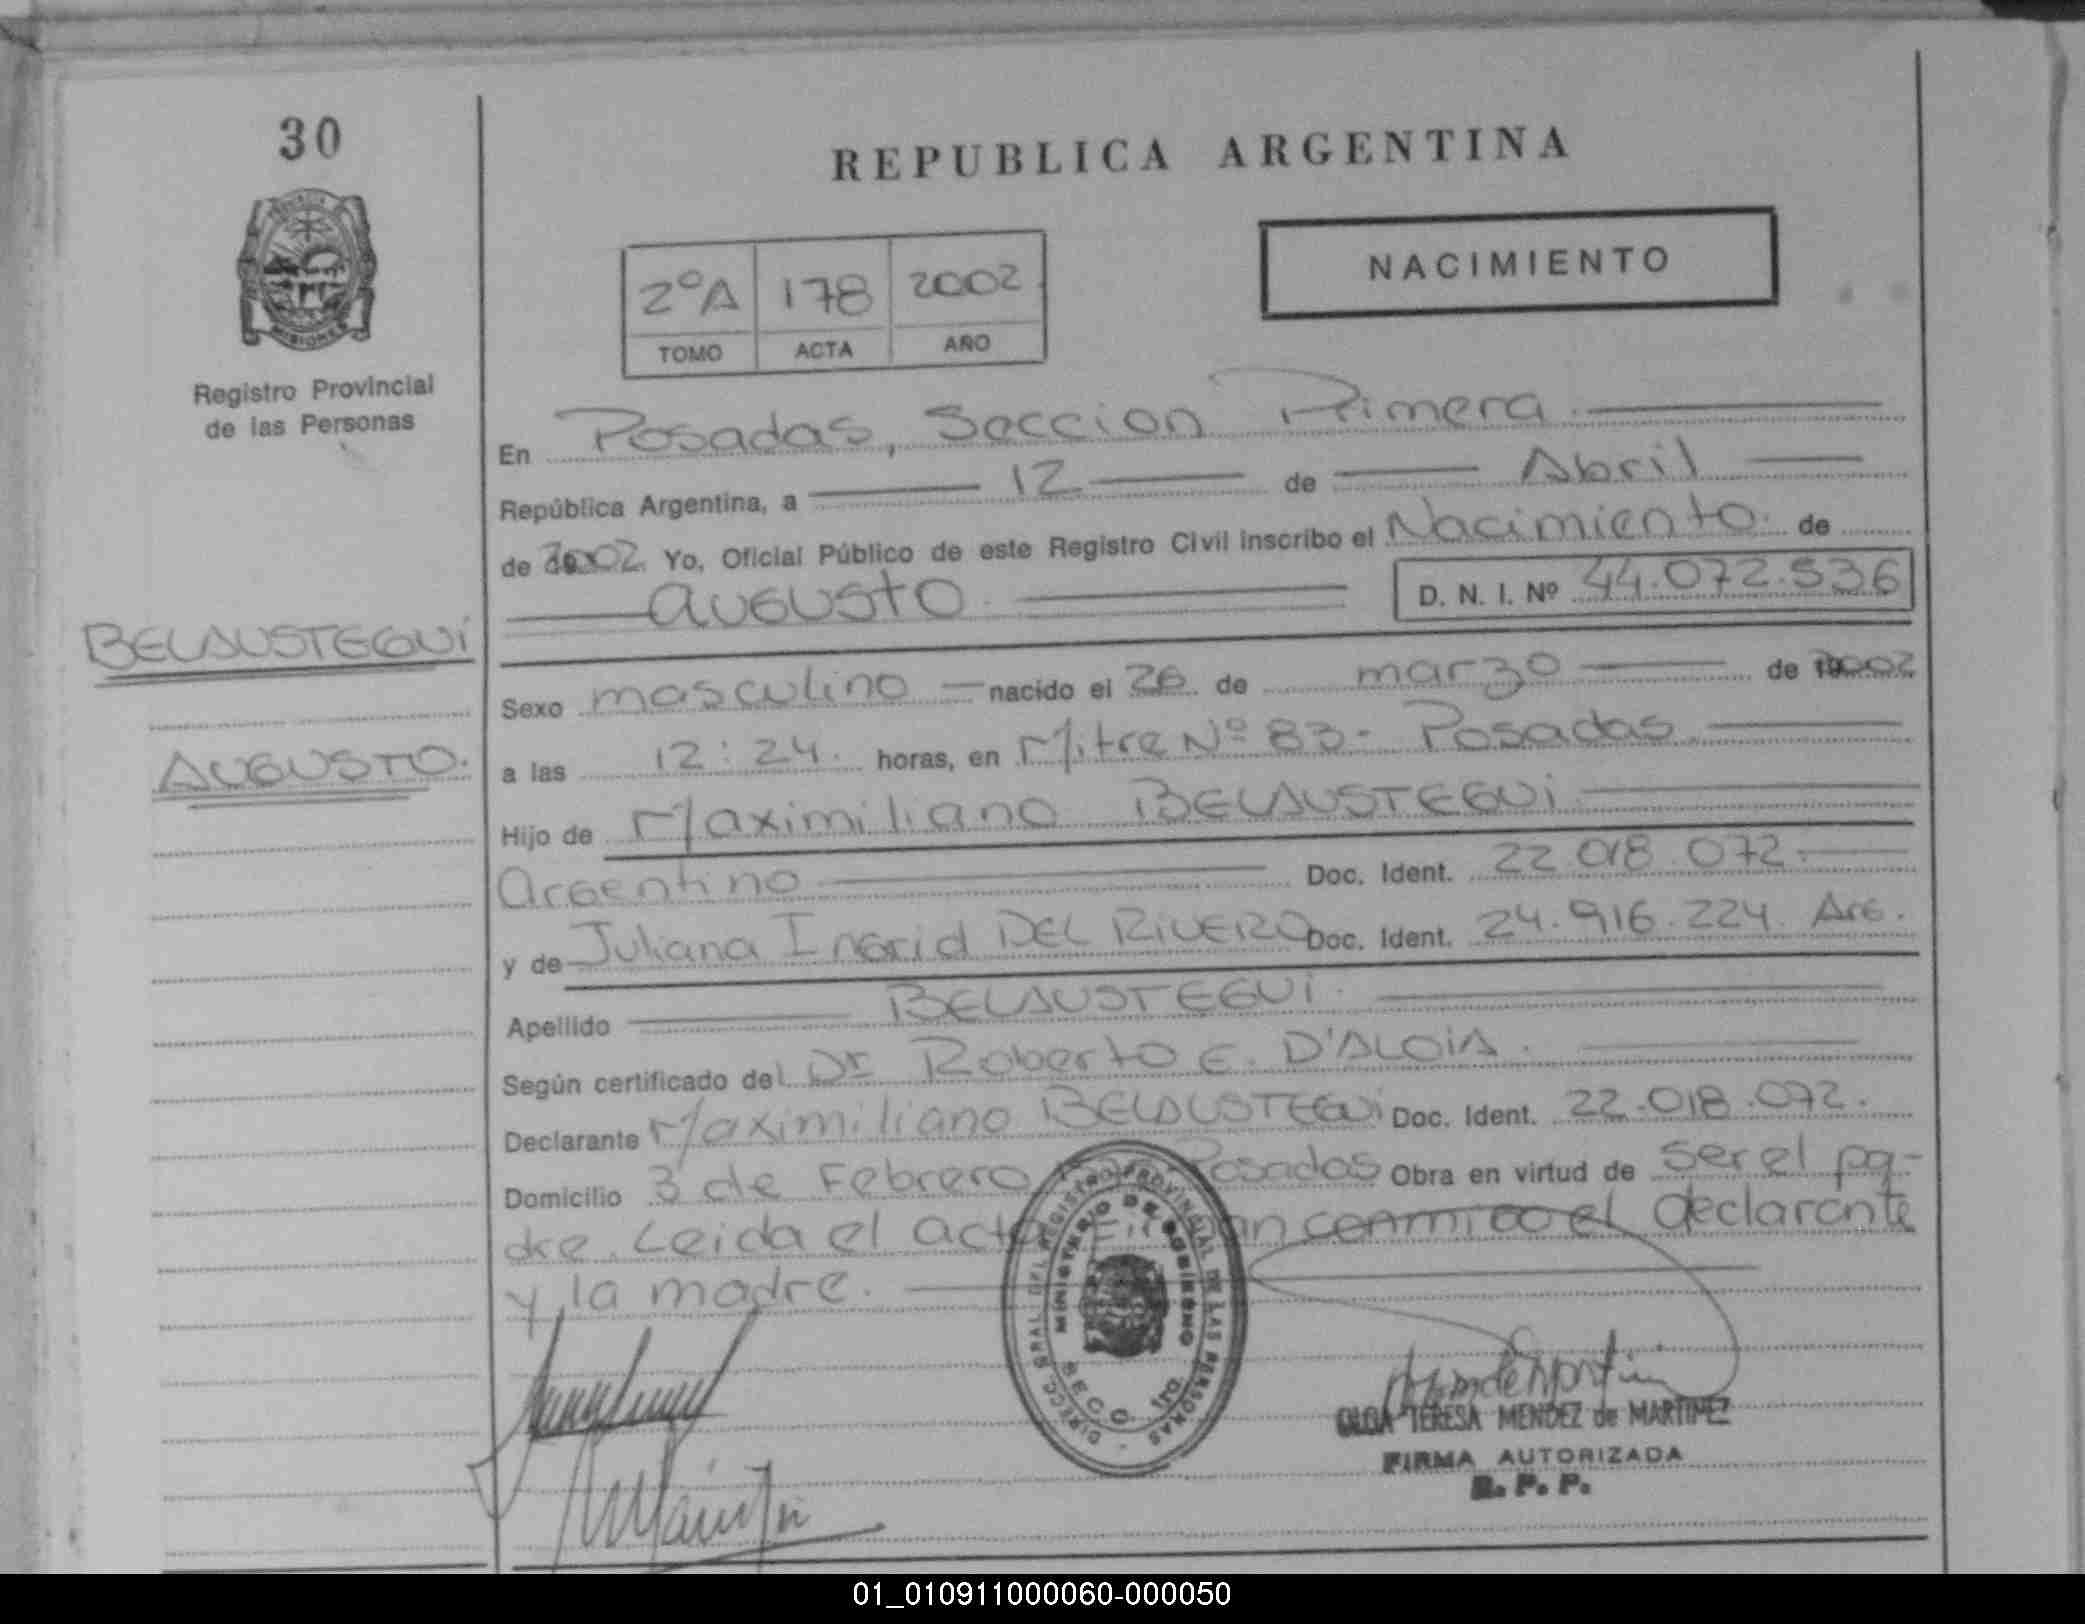 30
REPUBLICA ARGENTINA
NACIMIENTO
2ºA 178 2002
TOMO ACTA AÑO
MISIONES
Registro Provincial
de las Personas
En Posadas, Seccion Primera
República Argentina, a 12 de Abril
de 2002 Yo, Oficial Público de este Registro Civil inscribo el Nacimiento de
AUGUSTO
D. N. I. Nº 44.072.536
BELAUSTEGUI
AUGUSTO.
Sexo masculino nacido el 26 de marzo de 2002
a las 12:24. horas, en Mitre Nº 83- Posadas
Hijo de Maximiliano BELAUSTEGUI
Argentino Doc. Ident. 22.018.072.
y de Juliana Ingrid DEL RIVERO Doc. Ident. 24.916.224. Arg.
Apellido BELAUSTEGUI.
Según certificado del Dr Roberto E. D'ALOIA.
Declarante Maximiliano BELAUSTEGUI Doc. Ident. 22.018.072.
Domicilio 3 de Febrero Posadas Obra en virtud de ser el pa-
dre. Leida el acta Firman conmigo el declarante
y la madre.
DIRECC. GRAL. DEL REGISTRO PROVINCIAL DE LAS PERSONAS
MINISTERIO DE GOBIERNO
SECC. 1ra.
OLGA TERESA MENDEZ de MARTINEZ
FIRMA AUTORIZADA
R. P. P.
01_010911000060-000050